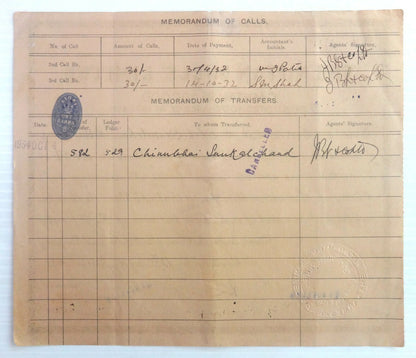 MEMORANDUM OF CALLS.
No. of Call Amount of Calls, Date of Payment, Accountant's Initials. Agents' Signature,
2nd Call No. 30/- 30/4/32
3rd Call No. 30/- 14-10-32
MEMORANDUM OF TRANSFERS.
Date Ledger Folio. To whom Transferred. Agents' Signature.
1934 OCT
582 529 Chinubhai Sankalchand
CANCELLED